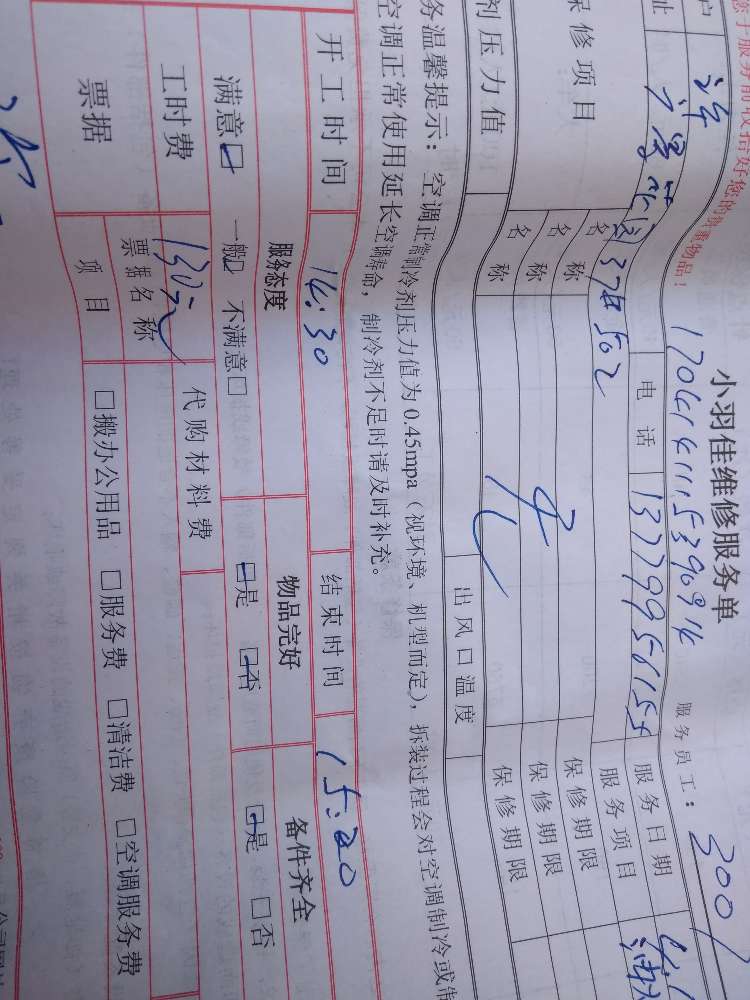 您于服务前收拾好您的贵重物品！
小羽佳维修服务单
服务员工： 3001
户 许
电话 13779956155
服务日期
址 37# 502
服务项目
保修项目 名称 保修期限
名称 无 保修期限
名称 保修期限
剂压力值 出风口温度
务温馨提示：空调正常制冷剂压力值为0.45mpa（视环境、机型而定），拆装过程会对空调制冷或制
空调正常使用延长空调寿命，制冷剂不足时请及时补充。
开工时间 14:30 结束时间 15:20
服务态度 物品完好 备件齐全
满意☑ 一般□ 不满意□ □是 □否 □是 □否
工时费 130元 代购材料费
票据 票据名称
项目 □搬办公用品 □服务费 □清洁费 □空调服务费